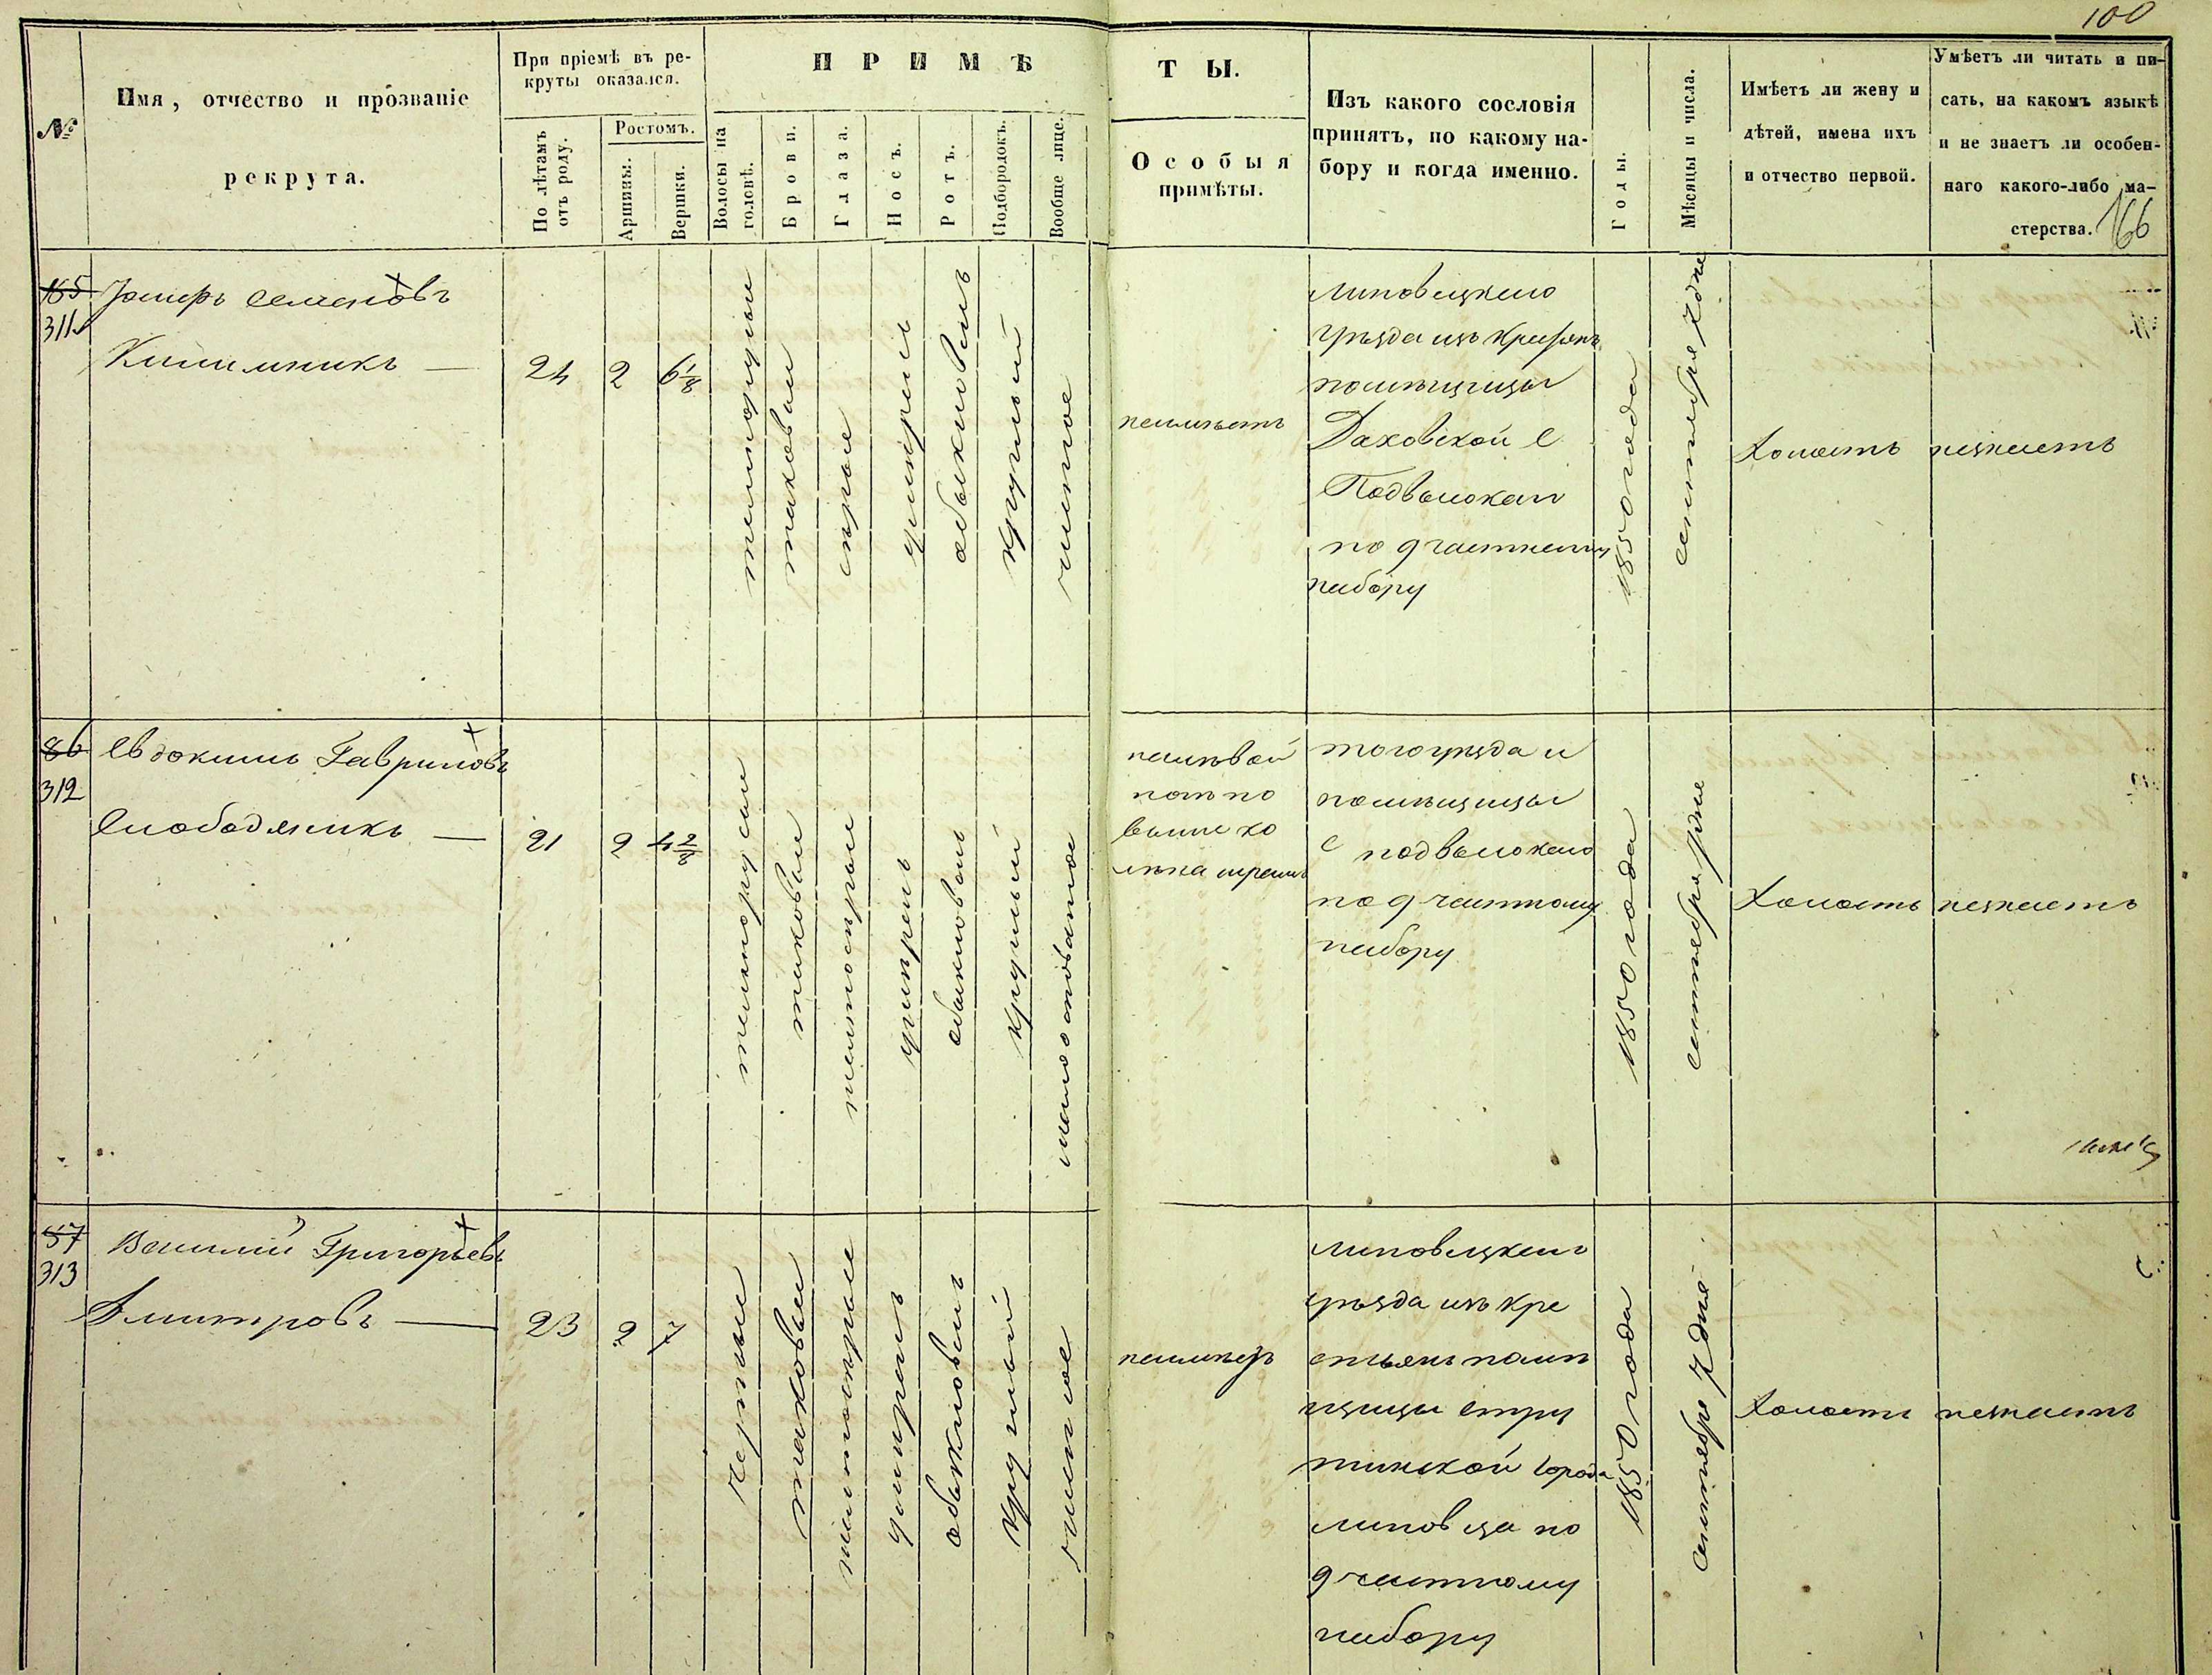 100
№
Имя, отчество и прозваніе
рекрута.
При пріемѣ въ ре-
круты оказался.
По лѣтамъ
отъ роду.
Ростомъ.
Аршины.
Вершки.
ПРИМѢ
Волосы на
головѣ.
Брови.
Глаза.
Носъ.
Ротъ.
Подбородокъ.
Вообще лице.
ТЫ.
Особыя
примѣты.
Изъ какого сословія
принятъ, по какому на-
бору и когда именно.
Годы.
Мѣсяцы и числа.
Имѣетъ ли жену и
дѣтей, имена ихъ
и отчество первой.
Умѣетъ ли читать и пи-
сать, на какомъ языкѣ
и не знаетъ ли особен-
наго какого-либо ма-
стерства.
166
165
311
Семеновъ
24
2
6 1/8
темнорусые
таковыи
серые
умерен
обыкновенъ
круглый
чистое
неимѣетъ
Липовецкаго
уѣзда изъ крестянъ
помѣщицы
Даховской с
Подвысокаго
по 9 частному
набору
1850 года
сентября 7 дня
Холостъ
незнаетъ
86
312
Евдокимъ Гавриловъ
Слободяникъ
21
2
4 2/8
темнорусыи
таковыи
желтосерыи
умѣренъ
обыкновенъ
круглый
малоо
налѣвой
ногѣ по
выше ко
лѣна шрамъ
того уѣзда и
помѣщицы
с подвысокаго
по 9 частному
набору
1850 года
сентября 7 дня
Холостъ
незнаетъ
87
313
Василій Григорьевъ
Дмитровъ
23
2
7
черные
таковыи
желтосерые
умеренъ
обыкновенъ
круглый
чистое
неимѣетъ
липовецкаго
уѣзда изъ кре
стьянъ помѣ
щицы Стру
тинской города
липовца по
9 частному
набору
1850 года
сентября 7 дня
Холостъ
незнаетъ